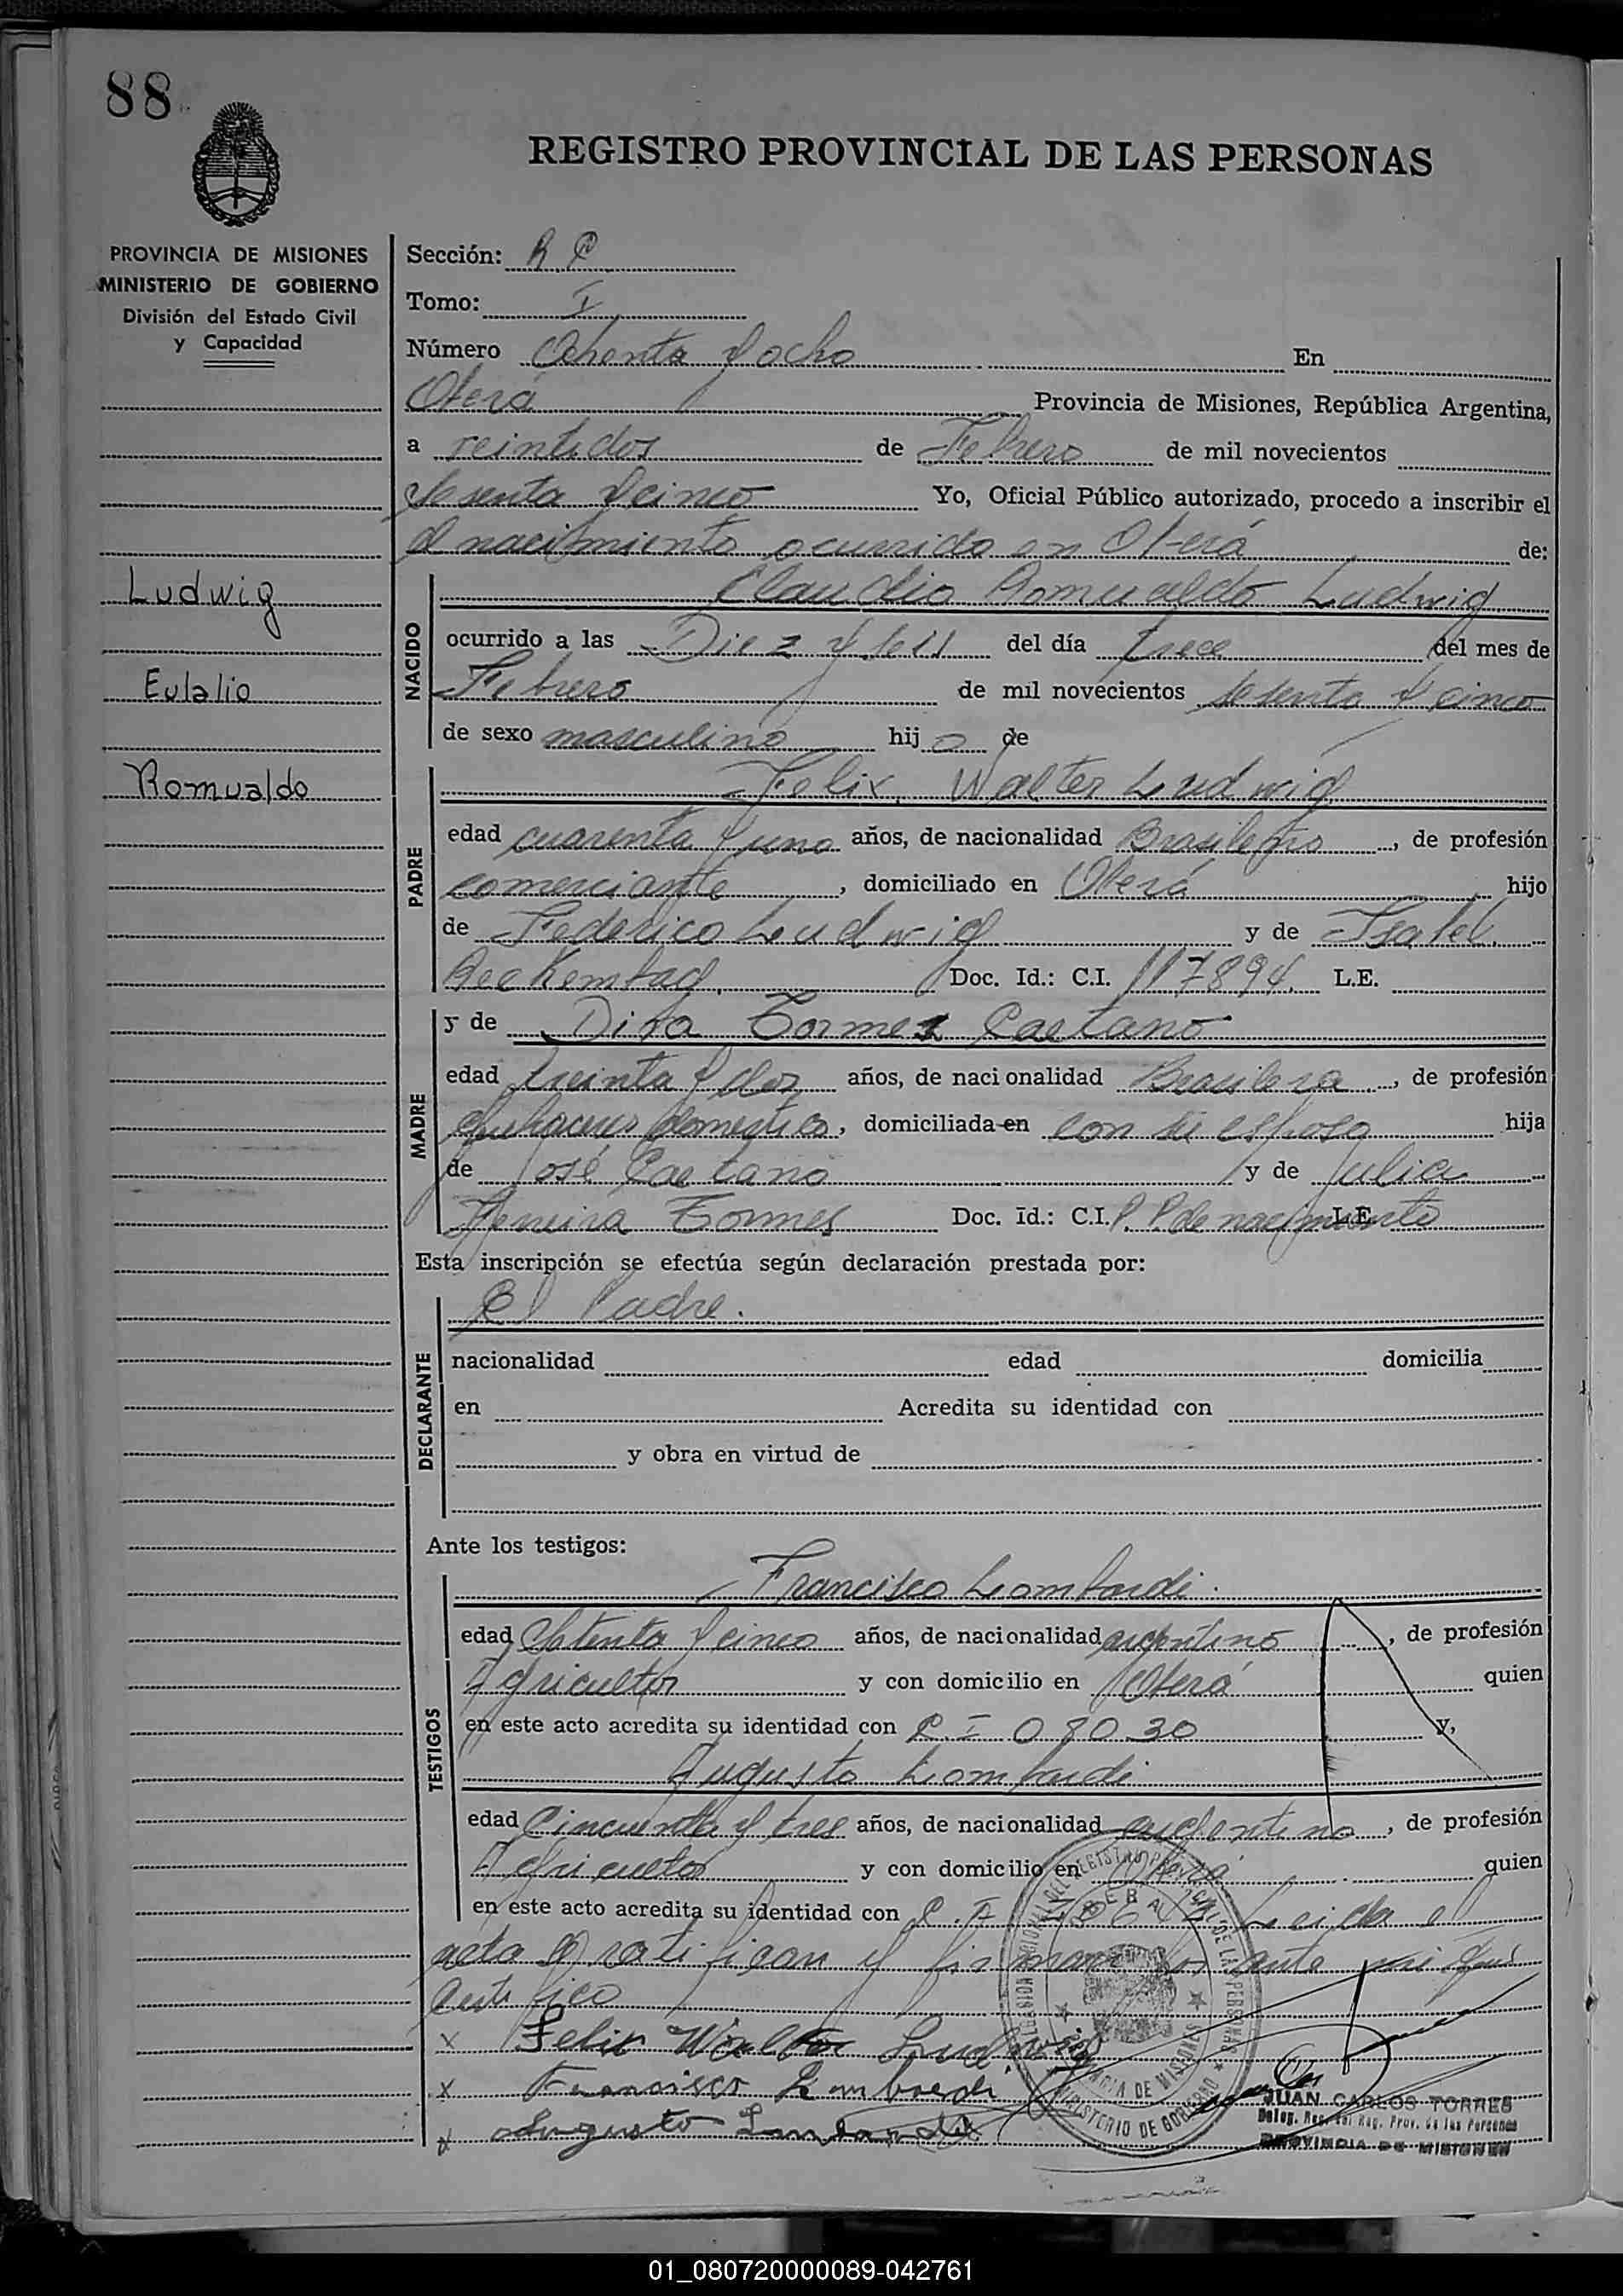 88
REGISTRO PROVINCIAL DE LAS PERSONAS
PROVINCIA DE MISIONES
MINISTERIO DE GOBIERNO
División del Estado Civil
y Capacidad
Ludwig
Eulalio
Romualdo
Sección: R.P.
Tomo: I
Número Ochenta y ocho En
Oberá Provincia de Misiones, República Argentina,
a veintidos de Febrero de mil novecientos
sesenta y cinco Yo, Oficial Público autorizado, procedo a inscribir el
el nacimiento ocurrido en Oberá de:
NACIDO
Claudio Romualdo Ludwig
ocurrido a las Diez y seis del día trece del mes de
Febrero de mil novecientos sesenta y cinco
de sexo masculino hijo de
PADRE
Felix Walter Ludwig
edad cuarenta y uno años, de nacionalidad Brasileño, de profesión
comerciante, domiciliado en Oberá hijo
de Federico Ludwig y de Isabel
Doc. Id.: C.I. 117894. L.E.
MADRE
y de Dita Tormes Caetano
edad treinta y dos años, de nacionalidad Brasilera, de profesión
quehaceres domestico, domiciliada en con su esposo hija
de José Caetano y de Julia
Tormes Doc. Id.: C.I. P. P de nacimiento L.E.
Esta inscripción se efectúa según declaración prestada por:
DECLARANTE
El Padre.
nacionalidad edad domicilia
en Acredita su identidad con
y obra en virtud de
Ante los testigos:
TESTIGOS
Francisco Lombardi.
edad setenta y cinco años, de nacionalidad argentino, de profesión
Agricultor y con domicilio en Oberá quien
en este acto acredita su identidad con C.I 08030 y,
Augusto Lombardi
edad Cincuenta y tres años, de nacionalidad argentino, de profesión
Agricultor y con domicilio en Oberá quien
en este acto acredita su identidad con C.I Leida el
acta la ratifican y firman por ante mi que
certifico
x Felix Walter Ludwig
x Francisco Lombardi
x Augusto Lombardi
OBERA
PROVINCIA DE MISIONES
MINISTERIO DE GOBIERNO
JUAN CARLOS TORRES
Deleg. Reg. del Reg. Prov. de las Personas
PROVINCIA DE MISIONES
01_080720000089-042761